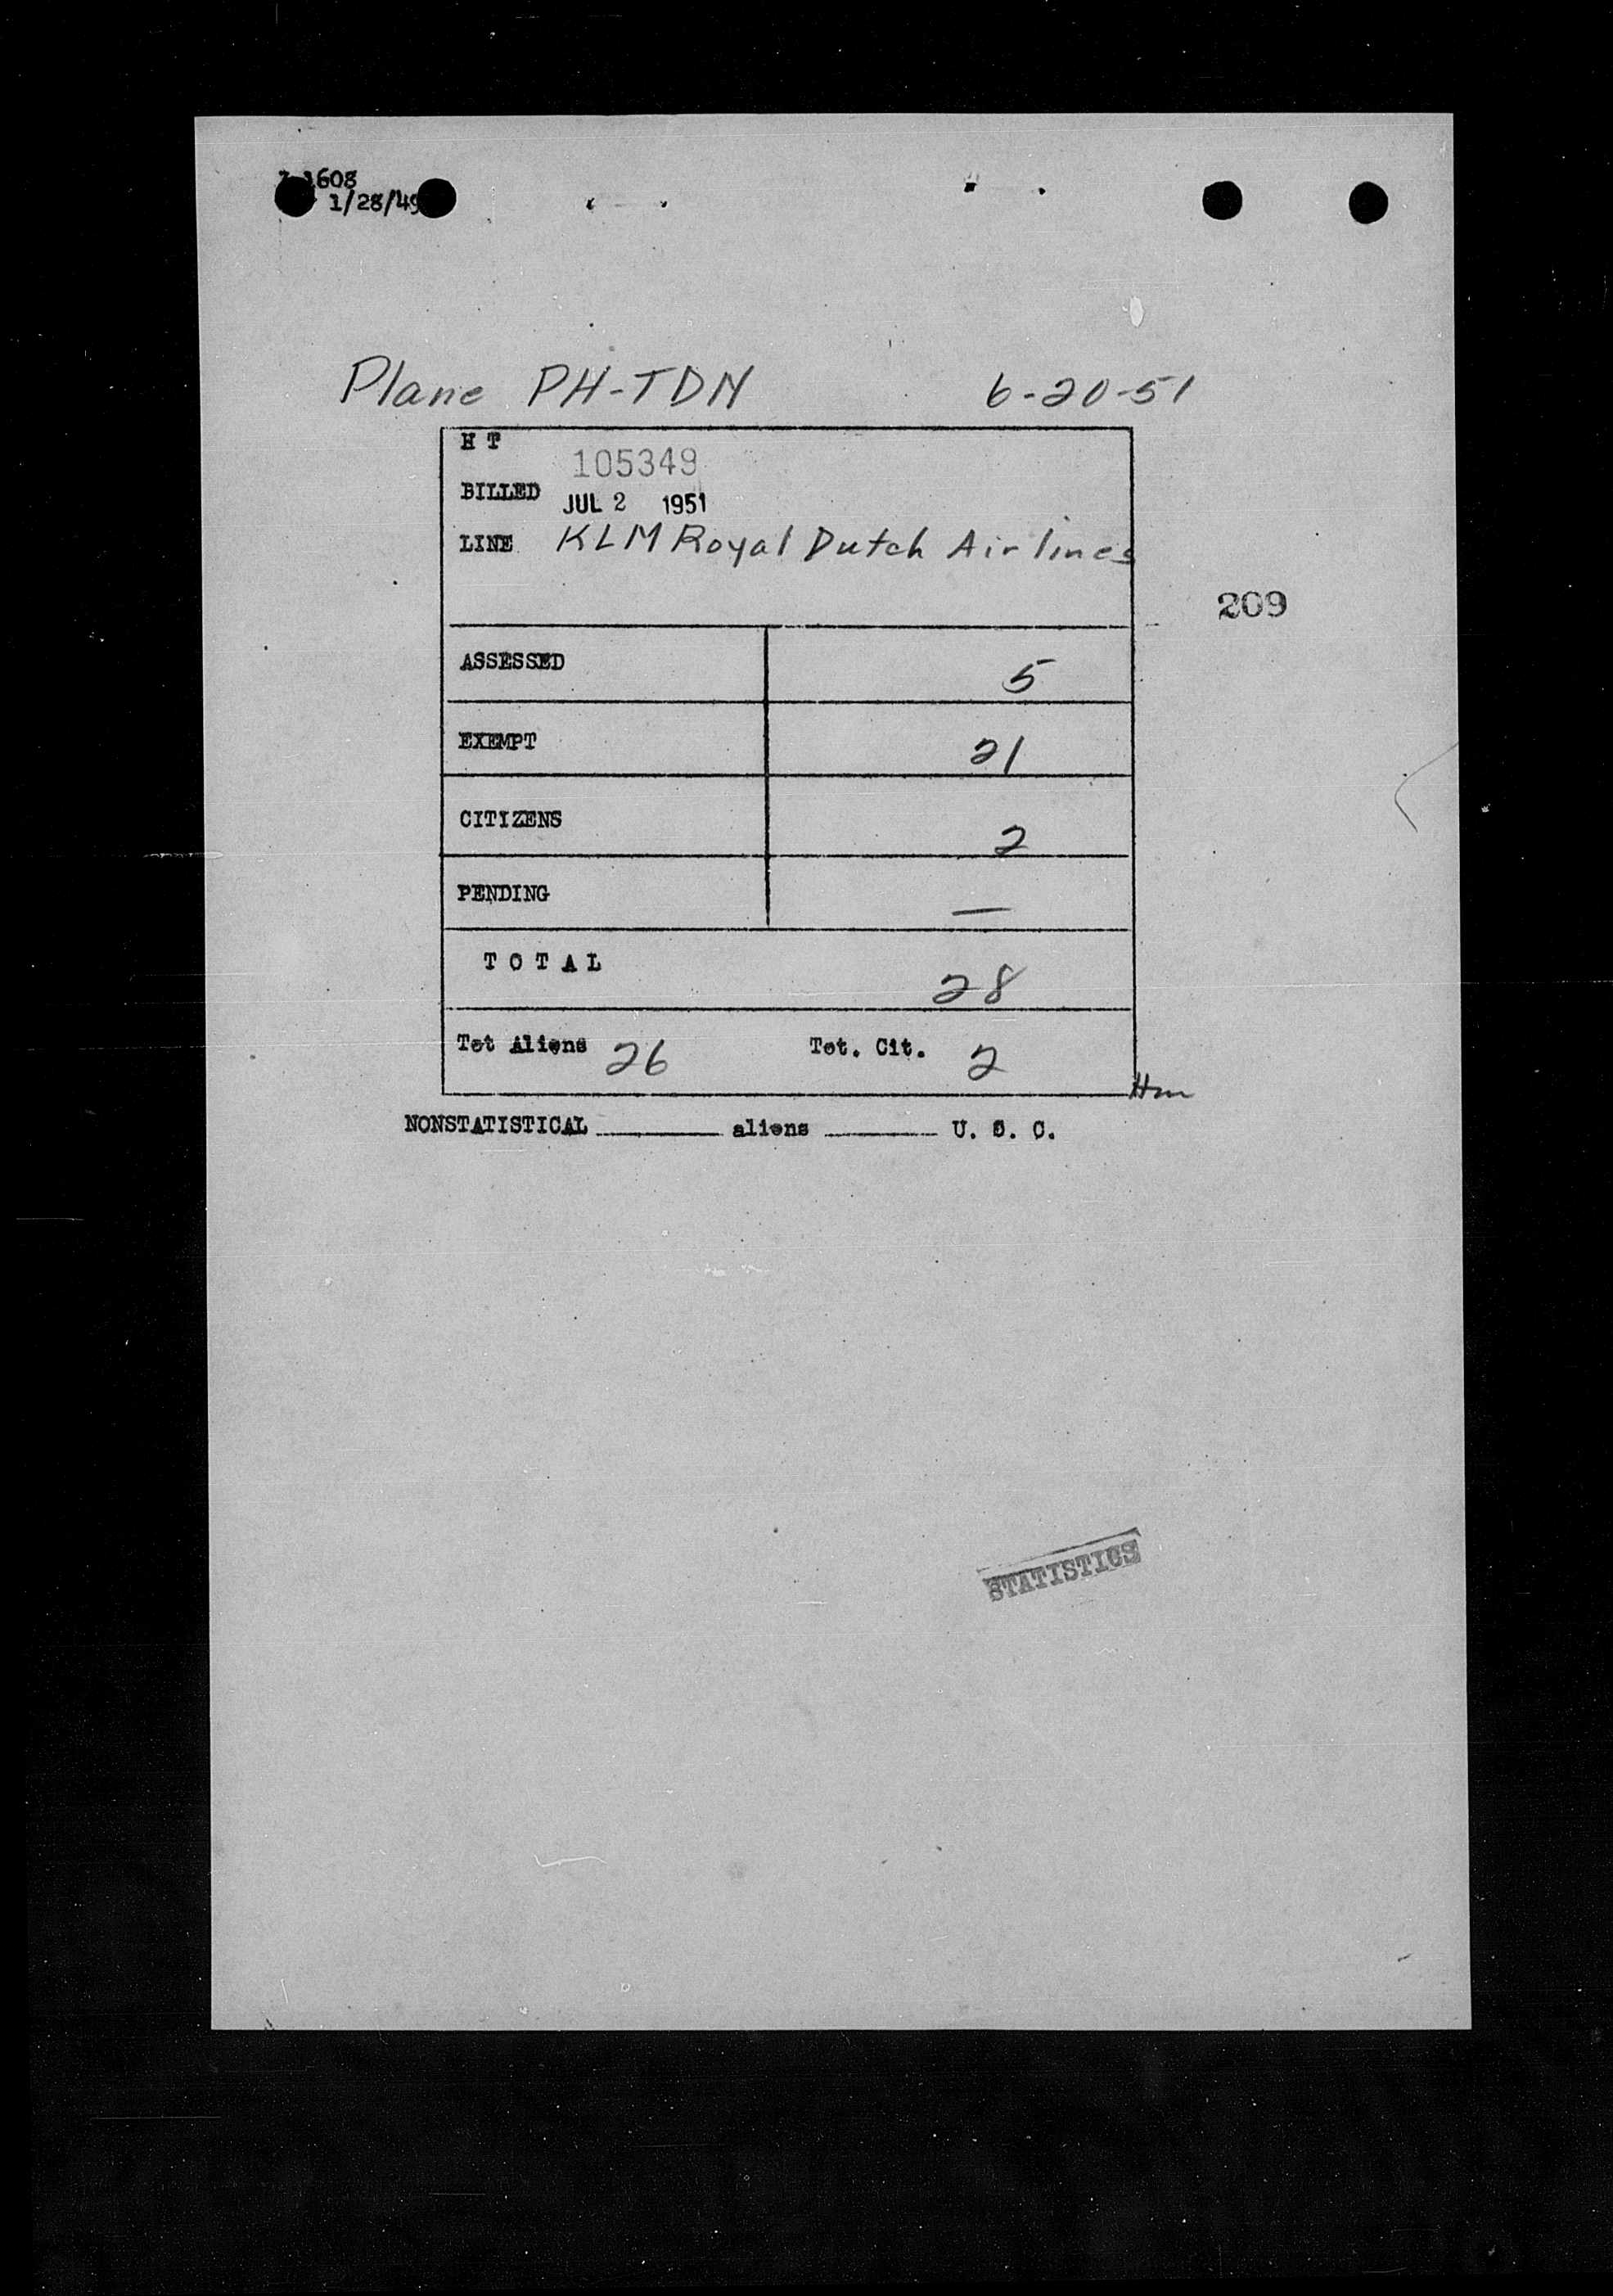 1608
1/28/49
Plane PH-TDN 6-20-51
H T
105349
BILLED JUL 2 1951
LINE KLM Royal Dutch Airlines
209
ASSESSED 5
EXEMPT 21
CITIZENS 2
PENDING —
T O T A L 28
Tot Aliens 26 Tot. Cit. 2
NONSTATISTICAL ______ aliens ______ U. S. C.
STATISTICS